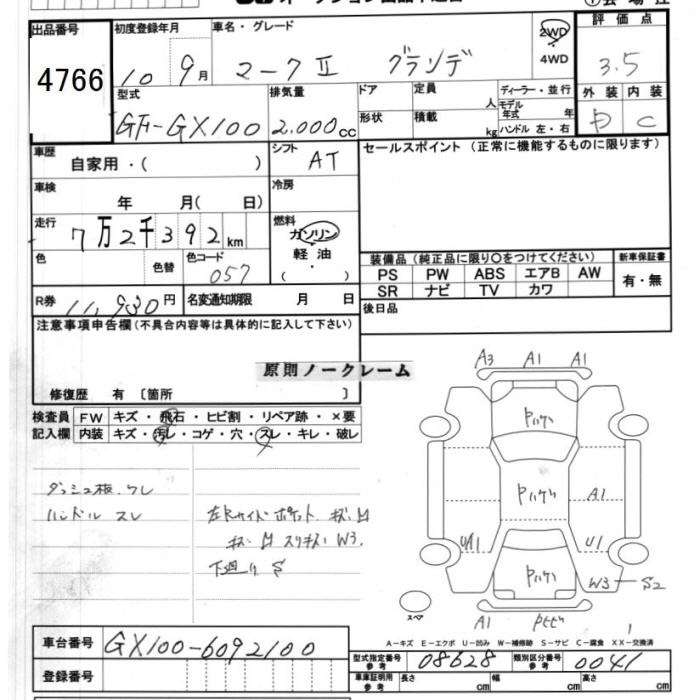 出品番号 初度登録年月 車名・グレード 2WD 評価点
4766 10 9月 マークⅡ グランデ 4WD 3.5
型式 排気量 ドア 定員 人 ディーラー・並行 外装 内装
GF-GX100 2.000cc 形状 積載 kg モデル年式 年 ハンドル 左・右 D C
車歴 自家用・( ) シフト AT セールスポイント(正常に機能するものに限ります)
車検 年 月( 日) 冷房
走行 7万2千392km 燃料 ガソリン
軽油
( )
色 色替 色コード 057
装備品(純正品に限り○をつけてください) 新車保証書
PS PW ABS エアB AW 有・無
SR ナビ TV カワ
R券 11,930円 名変通知期限 月 日 後日品
注意事項申告欄(不具合内容等は具体的に記入して下さい)
原則ノークレーム
修復歴 有 〔箇所 〕
検査員 FW キズ・飛石・ヒビ割・リペア跡・×要
記入欄 内装 キズ・汚レ・コゲ・穴・スレ・キレ・破レ
ダッシュ板、ワレ
ハンドル スレ
左Rサイド ポケット キズ、凹
キズ 凹 スリキズ W3、
下廻り S
A3 A1 A1
Pハゲ
Pハゲ A1
UA1 U1
Pハゲ W3 S2
スペア
A1 Pヒビ
A-キズ E-エクボ U-凹み W-補修跡 S-サビ C-腐食 XX-交換済
車台番号 GX100-6092100
型式指定番号 参考 08628 類別区分番号 参考 0041
登録番号
車庫証明用 参考 長さ cm 幅 cm 高さ cm